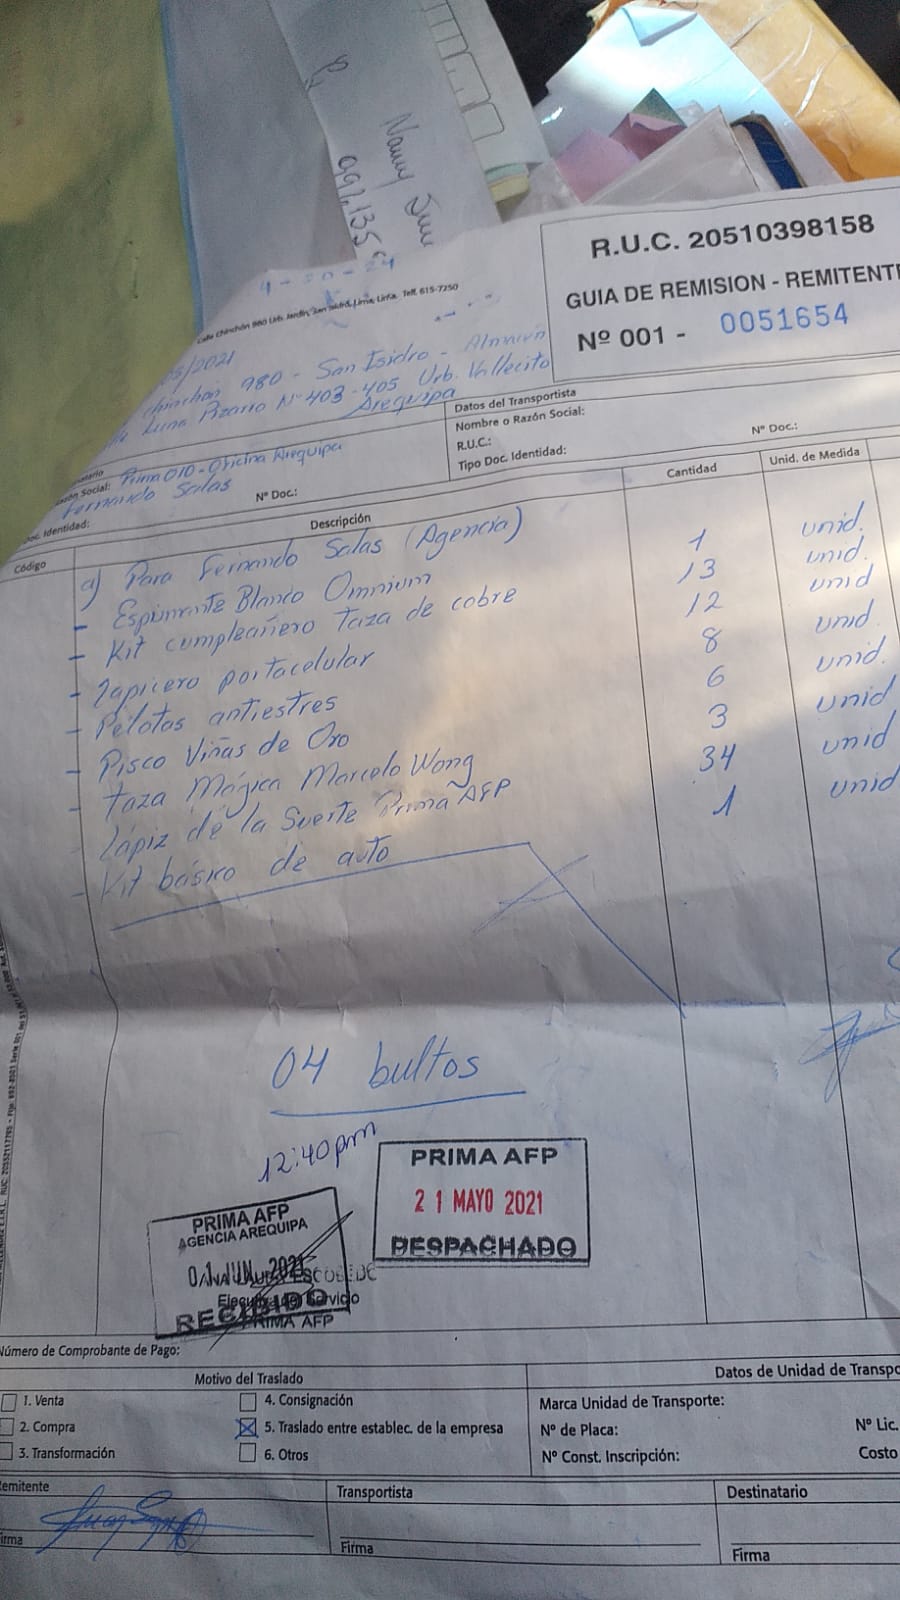 Nancy
992135
R.U.C. 20510398158
GUIA DE REMISION - REMITENTE
Nº 001 - 0051654
Calle Chinchón 980 Urb. Jardín, San Isidro, Lima, Lima. Telf. 615-7250
05/2021
chinchón 980 - San Isidro - Almacén
Luna Pizarro Nº 403-405 Urb. Vallecito
Arequipa
Datos del Transportista
Nombre o Razón Social:
R.U.C.:
Tipo Doc. Identidad:
Nº Doc.:
Social: Prima 010 - Oficina Arequipa
Fernando Salas
Doc. Identidad:
Nº Doc.:
Código Descripción Cantidad Unid. de Medida
a) Para Fernando Salas (Agencia)
- Espumante Blanco Omnium 1 unid.
- Kit cumpleañero Taza de cobre 13 unid.
- Lapicero portacelular 12 unid
- Pelotas antiestres 8 unid.
- Pisco Viñas de Oro 6 unid.
- Taza Mágica Marcelo Wong 3 unid
- Lápiz de la Suerte Prima AFP 34 unid
- Kit básico de auto 1 unid
04 bultos
12:40pm
PRIMA AFP
21 MAYO 2021
DESPACHADO
PRIMA AFP
AGENCIA AREQUIPA
01 JUN. 2021
RECIBIDO
PRIMA AFP
Número de Comprobante de Pago:
Motivo del Traslado
1. Venta
2. Compra
3. Transformación
4. Consignación
5. Traslado entre establec. de la empresa
6. Otros
Datos de Unidad de Transpo
Marca Unidad de Transporte:
Nº de Placa:
Nº Lic.
Nº Const. Inscripción:
Costo
Remitente
Firma
Transportista
Firma
Destinatario
Firma